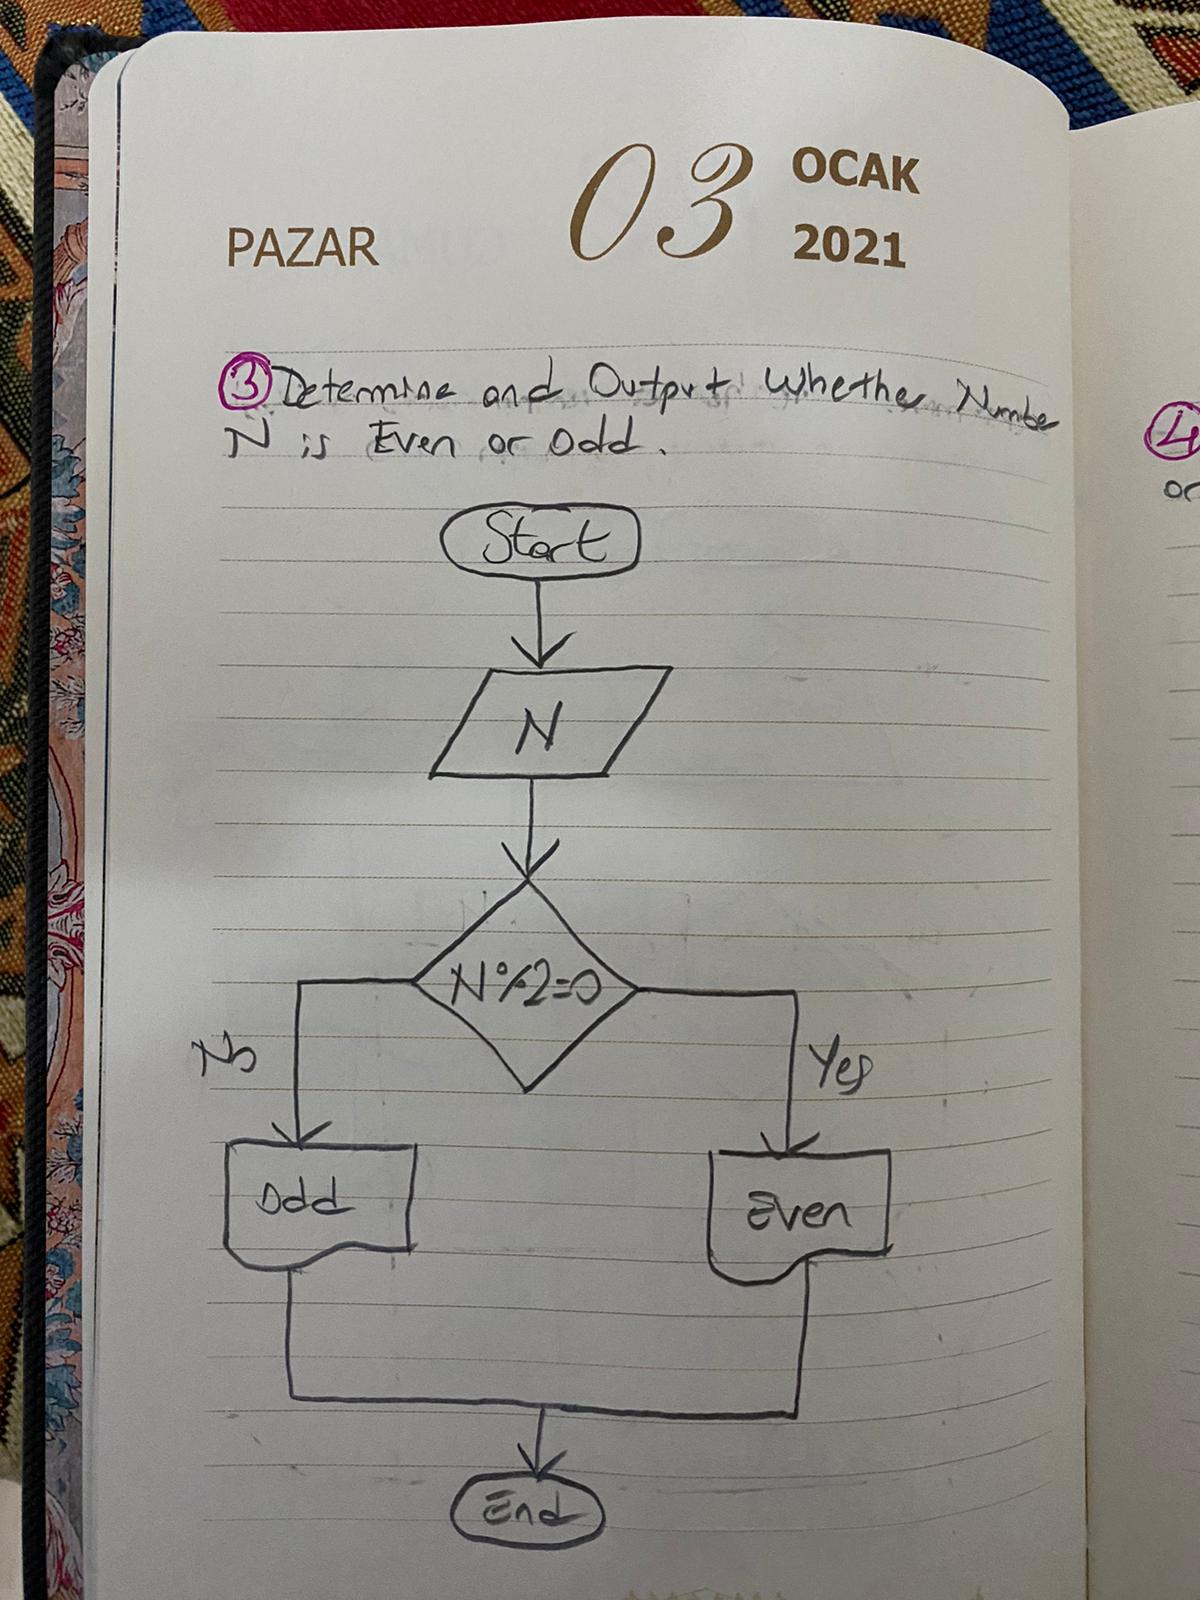 PAZAR
03
OCAK
2021
③ Determine and Output Whether Number
N is Even or Odd.
Start
N
N%2=0
No
Yes
Odd
Even
End
④
or